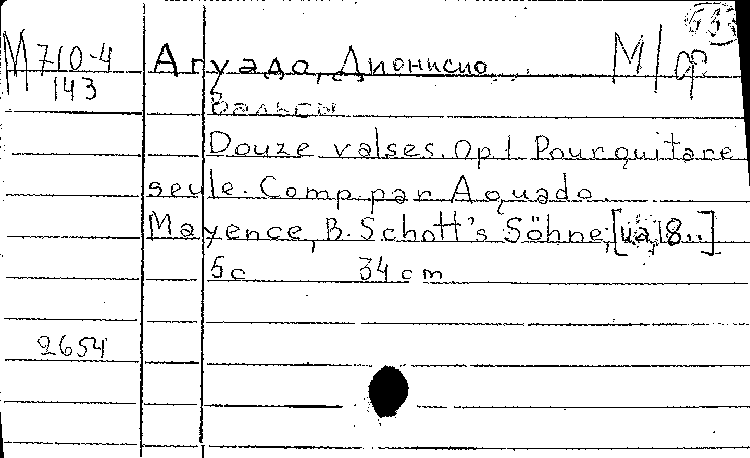 М 710-4
143
Агуадо, Дионисио
М/ф
Вальсы
Douze valses. Op 1 Pour quitare
seule. Comp. par Aguado.
Mayence, B. Schott's Söhne, [18..]
5 c 34 cm
2654